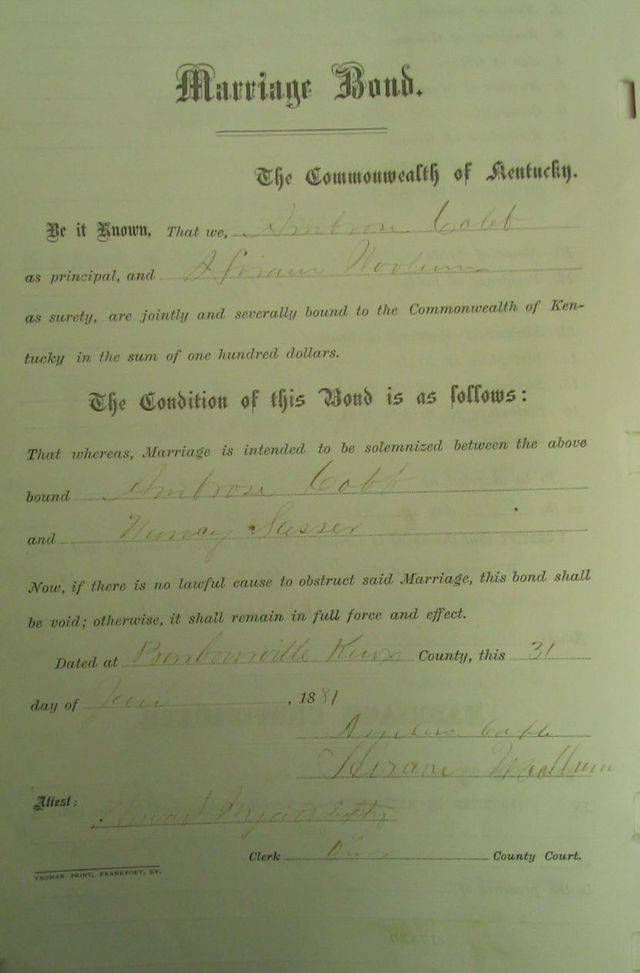 Marriage Bond.
The Commonwealth of Kentucky.
Be it Known, That we, Ambrose Cobb
as principal, and Hiram Woolum
as surety, are jointly and severally bound to the Commonwealth of Ken-
tucky in the sum of one hundred dollars.
The Condition of this Bond is as follows:
That whereas, Marriage is intended to be solemnized between the above
bound Ambrose Cobb
and Nancy Susser
Now, if there is no lawful cause to obstruct said Marriage, this bond shall
be void; otherwise, it shall remain in full force and effect.
Dated at Barbourville Knox County, this 31
day of , 1881
Cobb
Hiram Woollum
Attest:
Clerk County Court.
YEOMAN PRINT, FRANKFORT, KY.